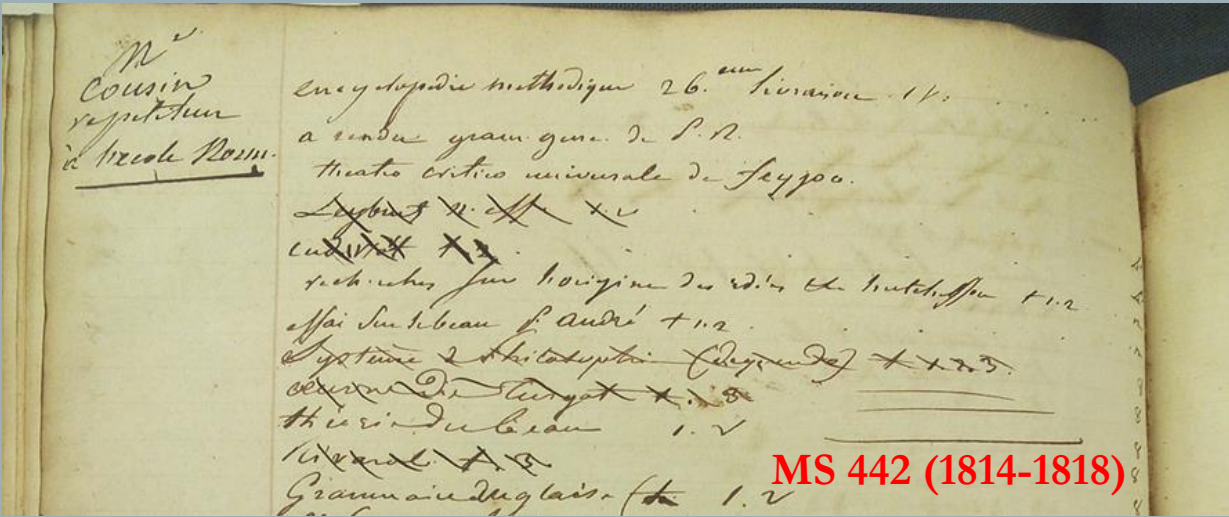 Mr
Cousin
repetiteur
à l'ecole Norm.
encyclopedie methodique 26.eme livraison 1 V.
a rendu gram. gene. de P. R.
theatro critico universale de feyjoo.
+ 1. 2
+ 1. 2
recherches sur l'origine des idées de hutchesson + 1. 2
essai sur le beau P. andré + 1. 2
Systeme de philosophie (degerando) + 1. 2. 3.
oeuvres De Turgot + 1. 8
théorie du beau 1. 2
rivarol + 3
Grammaire anglaise 1. 2
MS 442 (1814-1818)